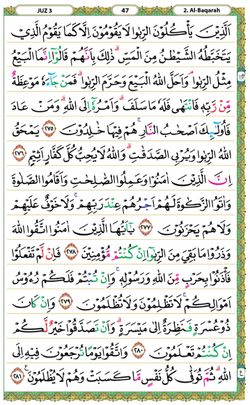 JUZ 3 47 2. Al-Baqarah
اَلَّذِيْنَ يَأْكُلُوْنَ الرِّبٰوا لَا يَقُوْمُوْنَ اِلَّا كَمَا يَقُوْمُ الَّذِيْ
يَتَخَبَّطُهُ الشَّيْطٰنُ مِنَ الْمَسِّ ۗ ذٰلِكَ بِاَنَّهُمْ قَالُوْٓا اِنَّمَا الْبَيْعُ
مِثْلُ الرِّبٰوا ۘ وَاَحَلَّ اللّٰهُ الْبَيْعَ وَحَرَّمَ الرِّبٰوا ۗ فَمَنْ جَآءَهٗ مَوْعِظَةٌ
مِّنْ رَّبِّهٖ فَانْتَهٰى فَلَهٗ مَا سَلَفَ ۗ وَاَمْرُهٗٓ اِلَى اللّٰهِ ۗ وَمَنْ عَادَ
فَاُولٰٓئِكَ اَصْحٰبُ النَّارِ ۚ هُمْ فِيْهَا خٰلِدُوْنَ ﴿٢٧٥﴾ يَمْحَقُ
اللّٰهُ الرِّبٰوا وَيُرْبِى الصَّدَقٰتِ ۗ وَاللّٰهُ لَا يُحِبُّ كُلَّ كَفَّارٍ اَثِيْمٍ ﴿٢٧٦﴾
اِنَّ الَّذِيْنَ اٰمَنُوْا وَعَمِلُوا الصّٰلِحٰتِ وَاَقَامُوا الصَّلٰوةَ
وَاٰتَوُا الزَّكٰوةَ لَهُمْ اَجْرُهُمْ عِنْدَ رَبِّهِمْ ۚ وَلَا خَوْفٌ عَلَيْهِمْ
وَلَا هُمْ يَحْزَنُوْنَ ﴿٢٧٧﴾ يٰٓاَيُّهَا الَّذِيْنَ اٰمَنُوا اتَّقُوا اللّٰهَ
وَذَرُوْا مَا بَقِيَ مِنَ الرِّبٰوٓا اِنْ كُنْتُمْ مُّؤْمِنِيْنَ ﴿٢٧٨﴾ فَاِنْ لَّمْ تَفْعَلُوْا
فَأْذَنُوْا بِحَرْبٍ مِّنَ اللّٰهِ وَرَسُوْلِهٖ ۚ وَاِنْ تُبْتُمْ فَلَكُمْ رُءُوْسُ
اَمْوَالِكُمْ ۚ لَا تَظْلِمُوْنَ وَلَا تُظْلَمُوْنَ ﴿٢٧٩﴾ وَاِنْ كَانَ
ذُوْ عُسْرَةٍ فَنَظِرَةٌ اِلٰى مَيْسَرَةٍ ۗ وَاَنْ تَصَدَّقُوْا خَيْرٌ لَّكُمْ
اِنْ كُنْتُمْ تَعْلَمُوْنَ ﴿٢٨٠﴾ وَاتَّقُوْا يَوْمًا تُرْجَعُوْنَ فِيْهِ اِلَى
اللّٰهِ ۗ ثُمَّ تُوَفّٰى كُلُّ نَفْسٍ مَّا كَسَبَتْ وَهُمْ لَا يُظْلَمُوْنَ ﴿٢٨١﴾